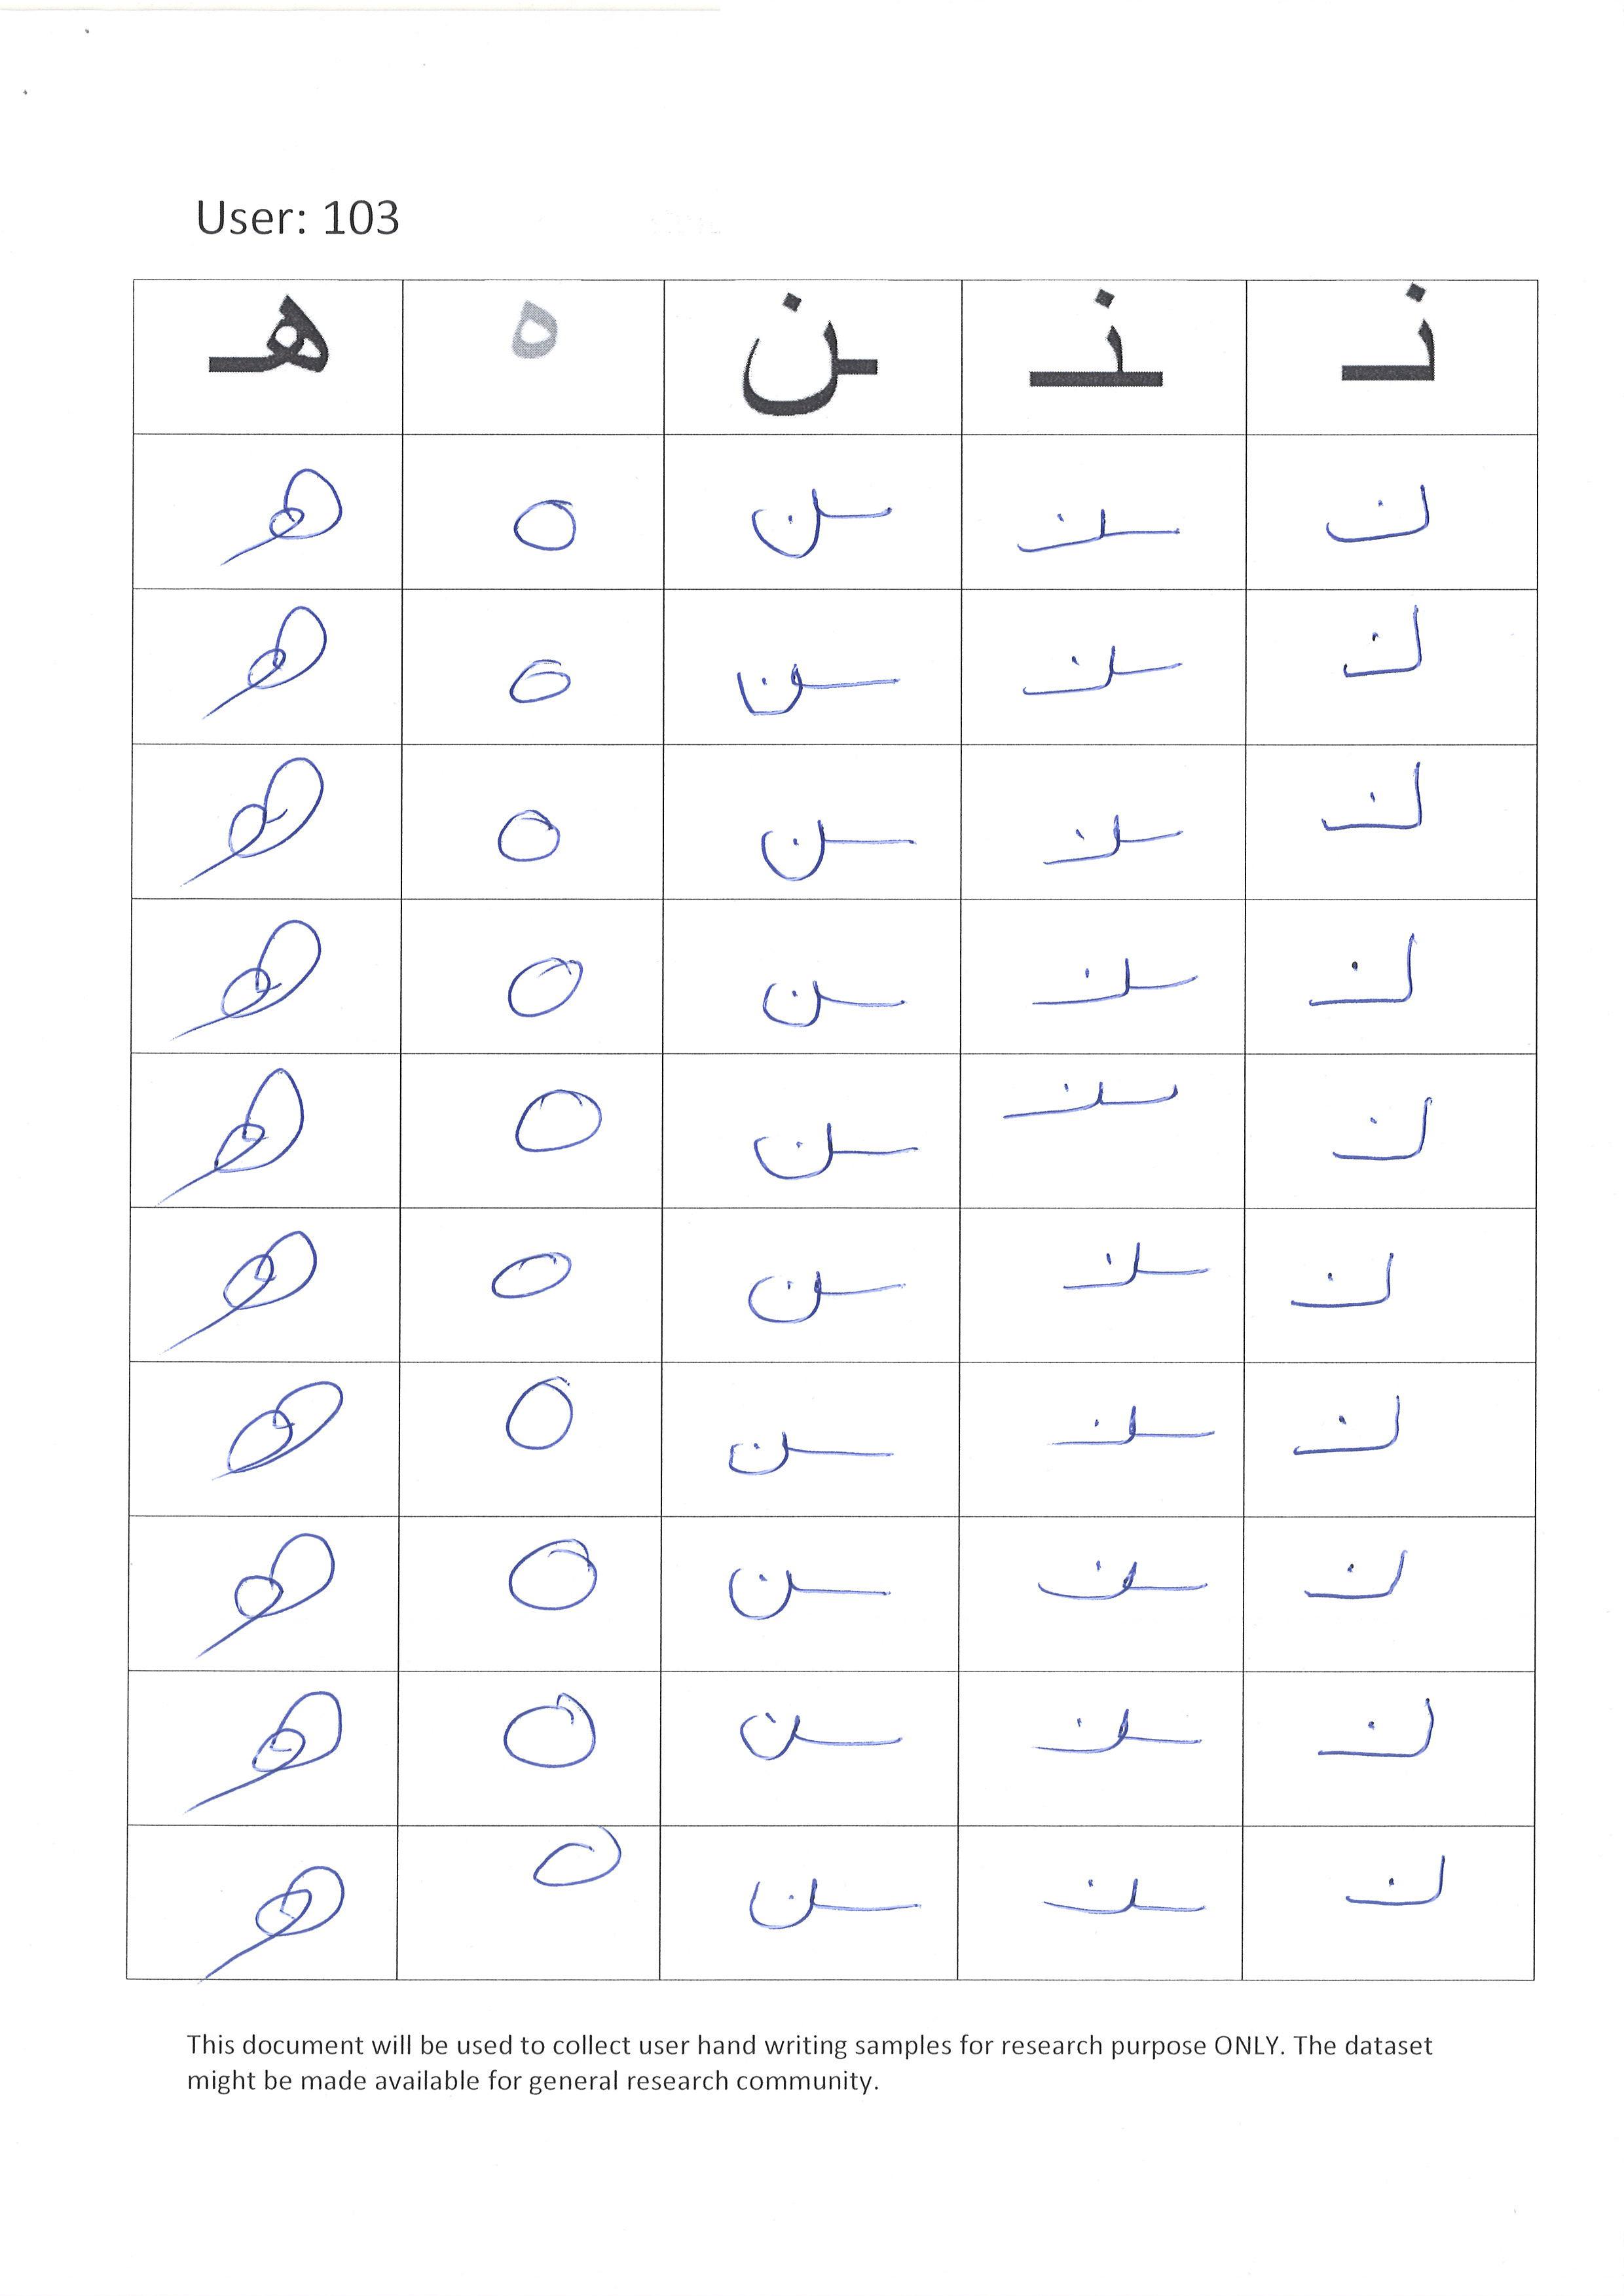 User: 103
نـ ـنـ ـن ه هـ
نـ ـنـ ـن ه هـ
نـ ـنـ ـن ه هـ
نـ ـنـ ـن ه هـ
نـ ـنـ ـن ه هـ
نـ ـنـ ـن ه هـ
نـ ـنـ ـن ه هـ
نـ ـنـ ـن ه هـ
نـ ـنـ ـن ه هـ
نـ ـنـ ـن ه هـ
نـ ـنـ ـن ه هـ
This document will be used to collect user hand writing samples for research purpose ONLY. The dataset
might be made available for general research community.